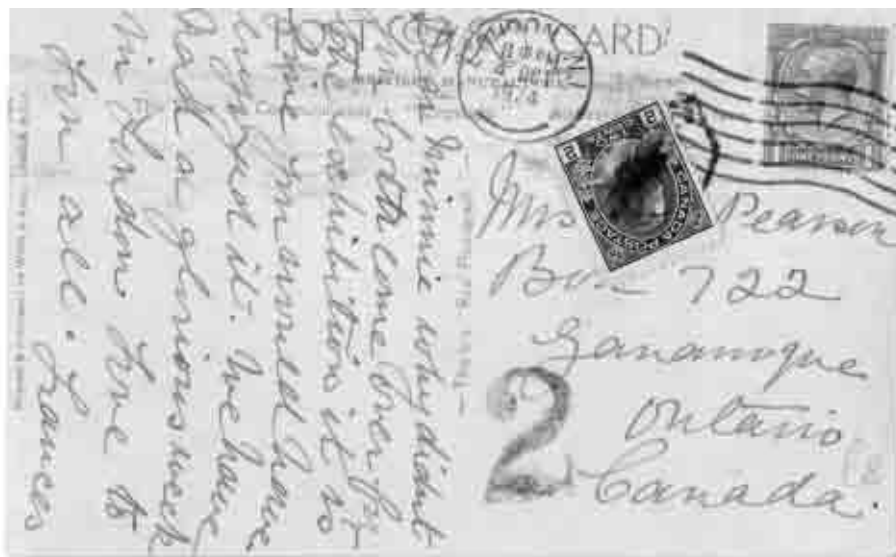 POST CARD
LONDON N.W.
OCT
CANADA POSTAGE
Mrs Pearson
Box 722
Gananoque
Ontario
Canada.
2
Dear Minnie why didnt
you both come over for
the exhibition it is
you would have
enjoyed it. We have
had a glorious week
in London Love to
you all. Frances